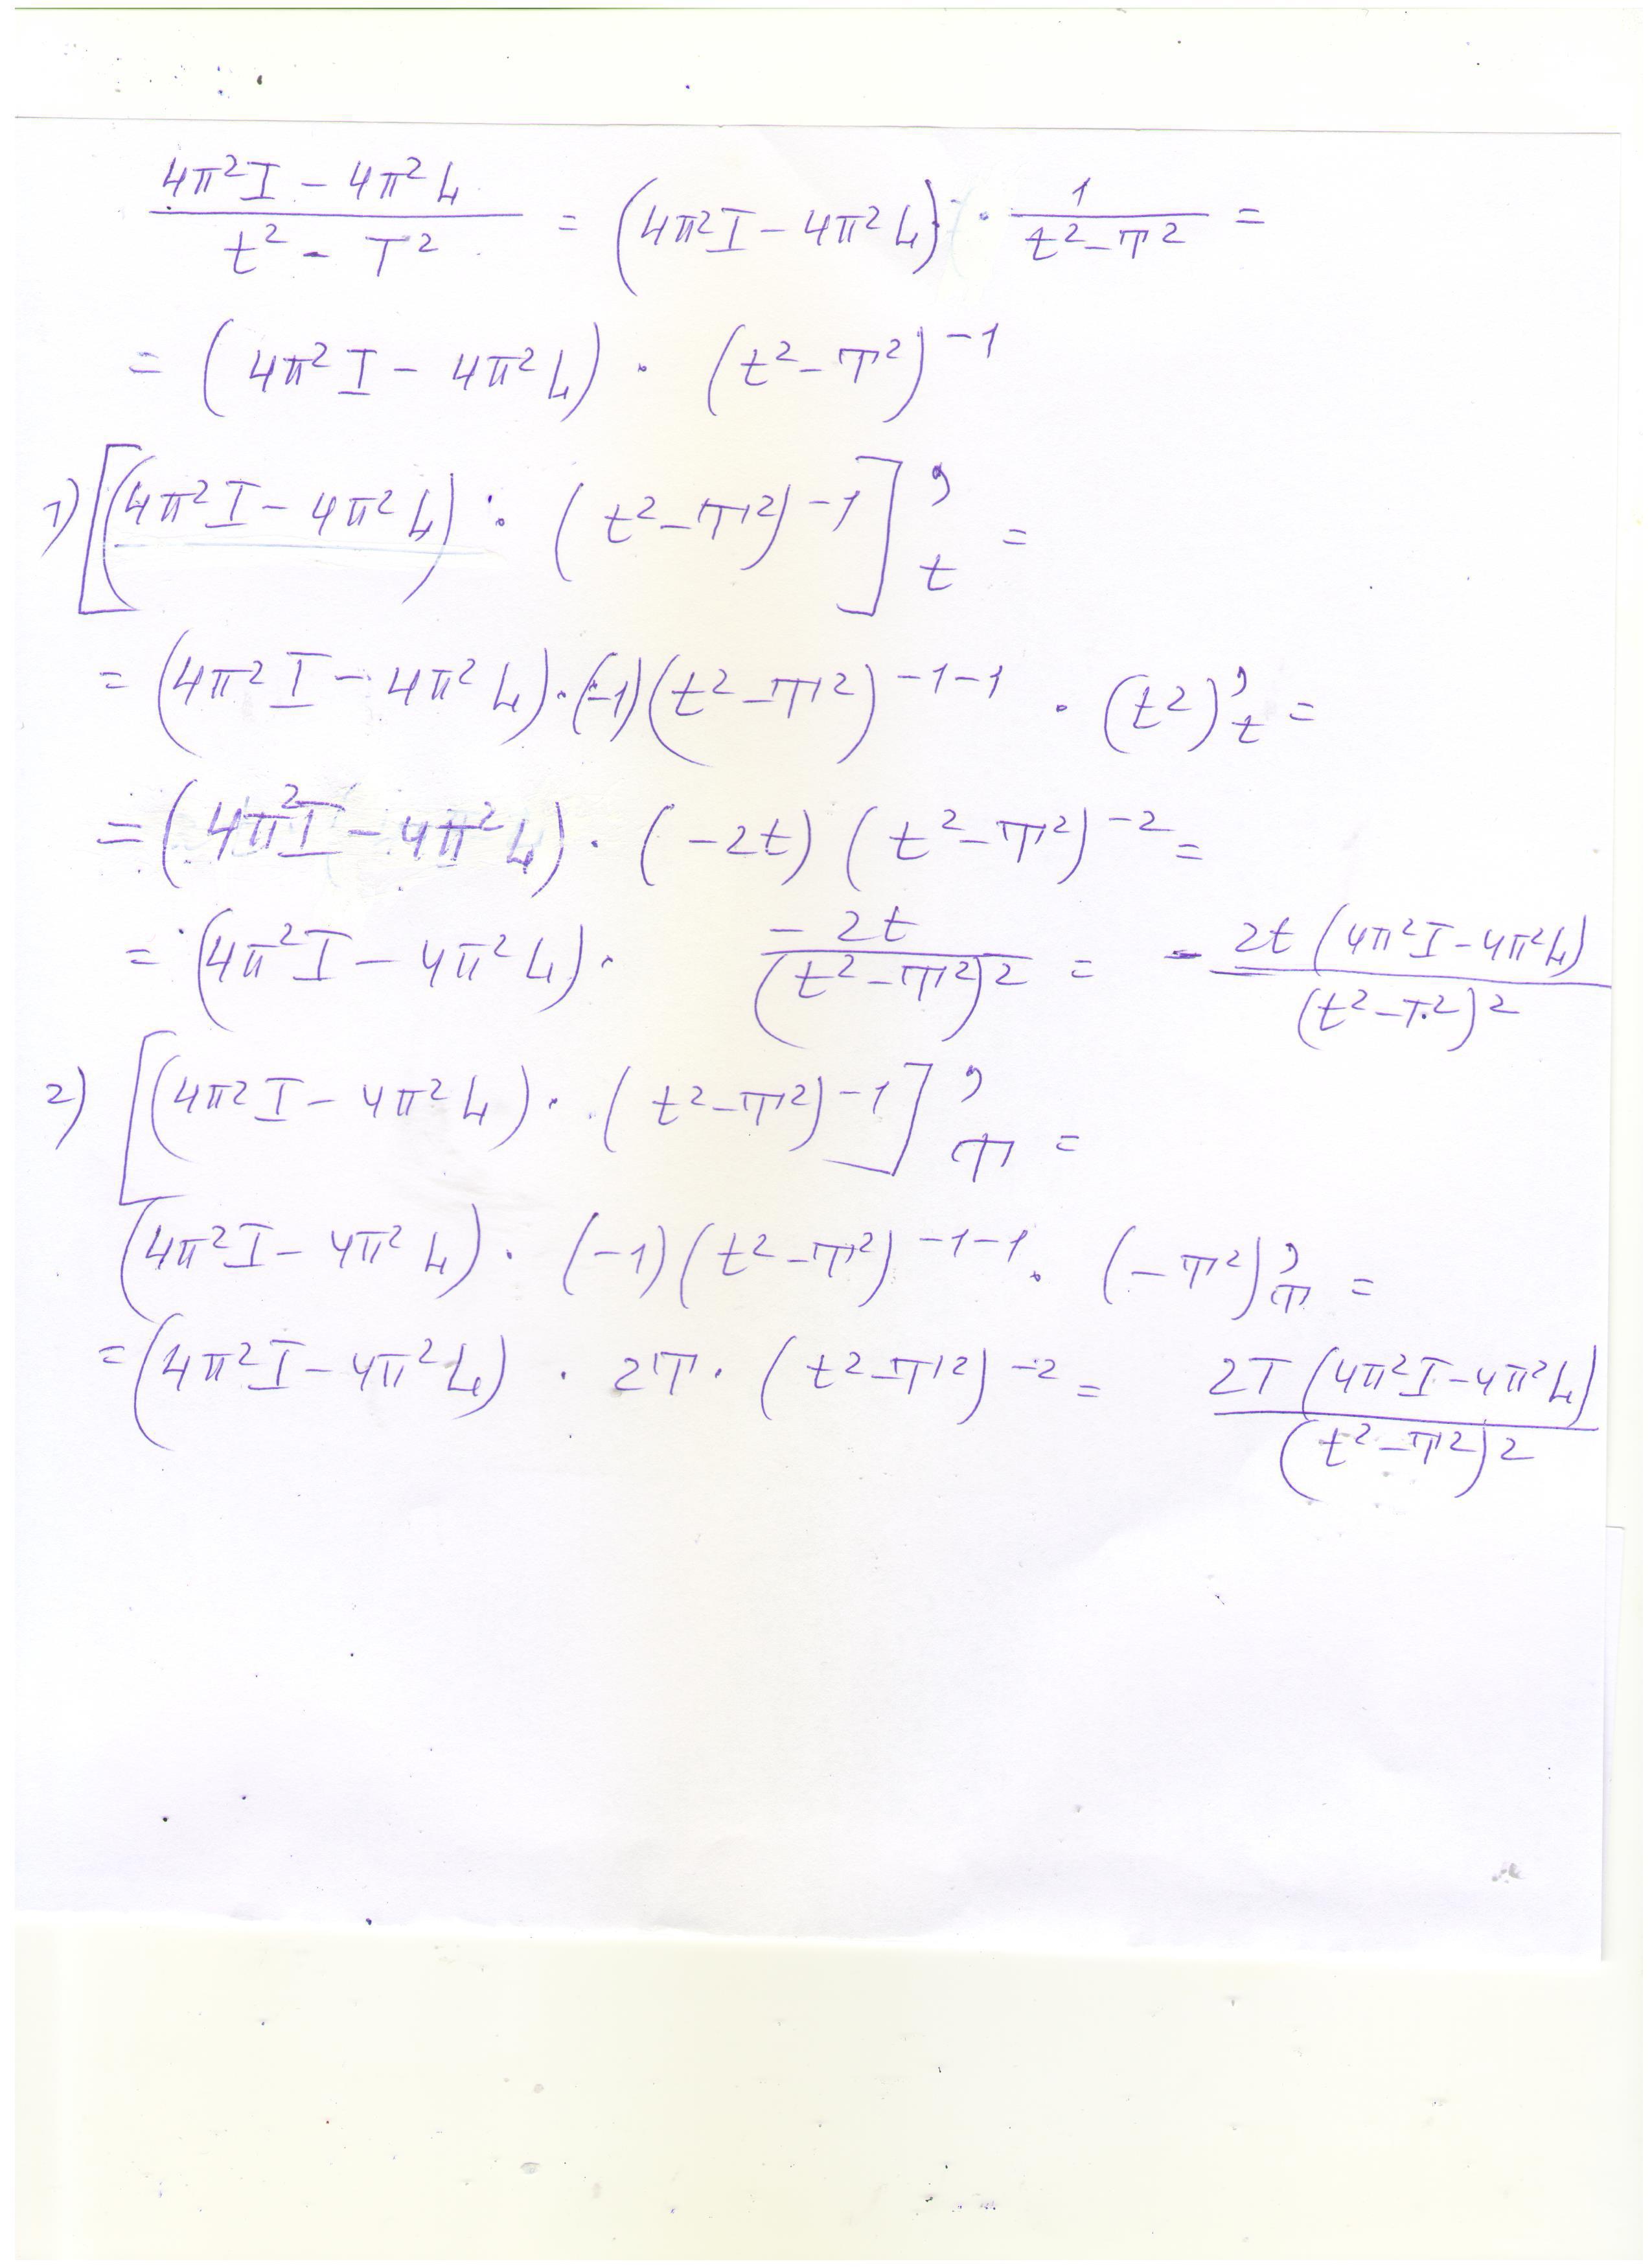 (4π²I − 4π²L)/(t² − T²) = (4π²I − 4π²L) · 1/(t² − T²) =
= (4π²I − 4π²L) · (t² − T²)⁻¹
1) [(4π²I − 4π²L) · (t² − T²)⁻¹]'ₜ =
= (4π²I − 4π²L) · (−1)(t² − T²)⁻¹⁻¹ · (t²)'ₜ =
= (4π²I − 4π²L) · (−2t) (t² − T²)⁻² =
= (4π²I − 4π²L) · −2t/(t² − T²)² = − 2t(4π²I − 4π²L)/(t² − T²)²
2) [(4π²I − 4π²L) · (t² − T²)⁻¹]'_T =
(4π²I − 4π²L) · (−1)(t² − T²)⁻¹⁻¹ · (−T²)'_T =
= (4π²I − 4π²L) · 2T · (t² − T²)⁻² = 2T(4π²I − 4π²L)/(t² − T²)²